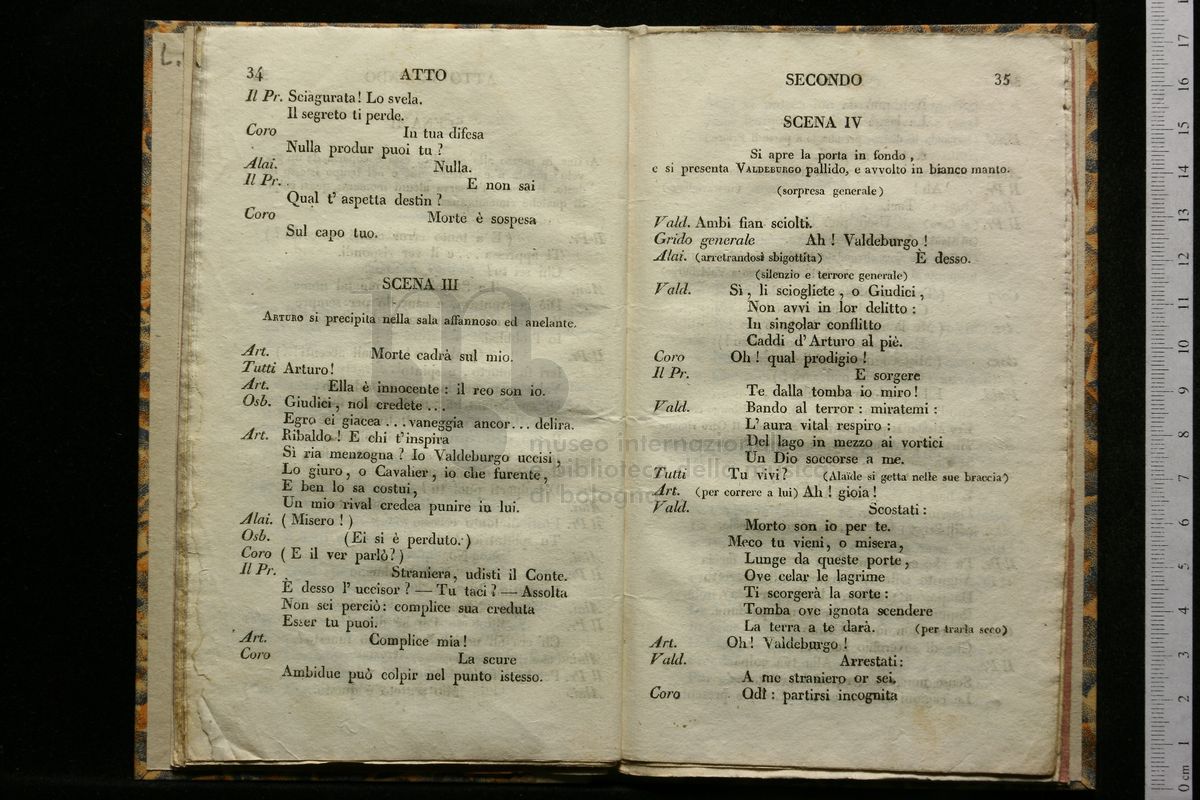 L.
34 ATTO
Il Pr. Sciagurata! Lo svela.
Il segreto ti perde.
Coro In tua difesa
Nulla produr puoi tu?
Alai. Nulla.
Il Pr. E non sai
Qual t' aspetta destin?
Coro Morte è sospesa
Sul capo tuo.
SCENA III
ARTURO si precipita nella sala affannoso ed anelante.
Art. Morte cadrà sul mio.
Tutti Arturo!
Art. Ella è innocente: il reo son io.
Osb. Giudici, nol credete ...
Egro ei giacea ... vaneggia ancor... delira.
Art. Ribaldo! E chi t'inspira
Sì ria menzogna? Io Valdeburgo uccisi,
Lo giuro, o Cavalier, io che furente,
E ben lo sa costui,
Un mio rival credea punire in lui.
Alai. (Misero!)
Osb. (Ei si è perduto.)
Coro (E il ver parlò?)
Il Pr. Straniera, udisti il Conte.
È desso l' uccisor? — Tu taci? — Assolta
Non sei perciò: complice sua creduta
Esser tu puoi.
Art. Complice mia!
Coro La scure
Ambidue può colpir nel punto istesso.
SECONDO 35
SCENA IV
Si apre la porta in fondo,
e si presenta VALDEBURGO pallido, e avvolto in bianco manto.
(sorpresa generale)
Vald. Ambi sian sciolti.
Grido generale Ah! Valdeburgo!
Alai. (arretrandosi sbigottita) È desso.
(silenzio e terrore generale)
Vald. Sì, li sciogliete, o Giudici,
Non avvi in lor delitto:
In singolar conflitto
Caddi d' Arturo al piè.
Coro Oh! qual prodigio!
Il Pr. E sorgere
Te dalla tomba io miro!
Vald. Bando al terror: miratemi:
L' aura vital respiro:
Del lago in mezzo ai vortici
Un Dio soccorse a me.
Tutti Tu vivi? (Alaide si getta nelle sue braccia)
Art. (per correre a lui) Ah! gioia!
Vald. Scostati:
Morto son io per te.
Meco tu vieni, o misera,
Lunge da queste porte,
Ove celar le lagrime
Ti scorgerà la sorte:
Tomba ove ignota scendere
La terra a te darà. (per trarla seco)
Art. Oh! Valdeburgo!
Vald. Arrestati:
A me straniero or sei.
Coro Odi: partirsi incognita
m.
museo internazionale
e biblioteca della musica
di bologna
0 cm 1 2 3 4 5 6 7 8 9 10 11 12 13 14 15 16 17